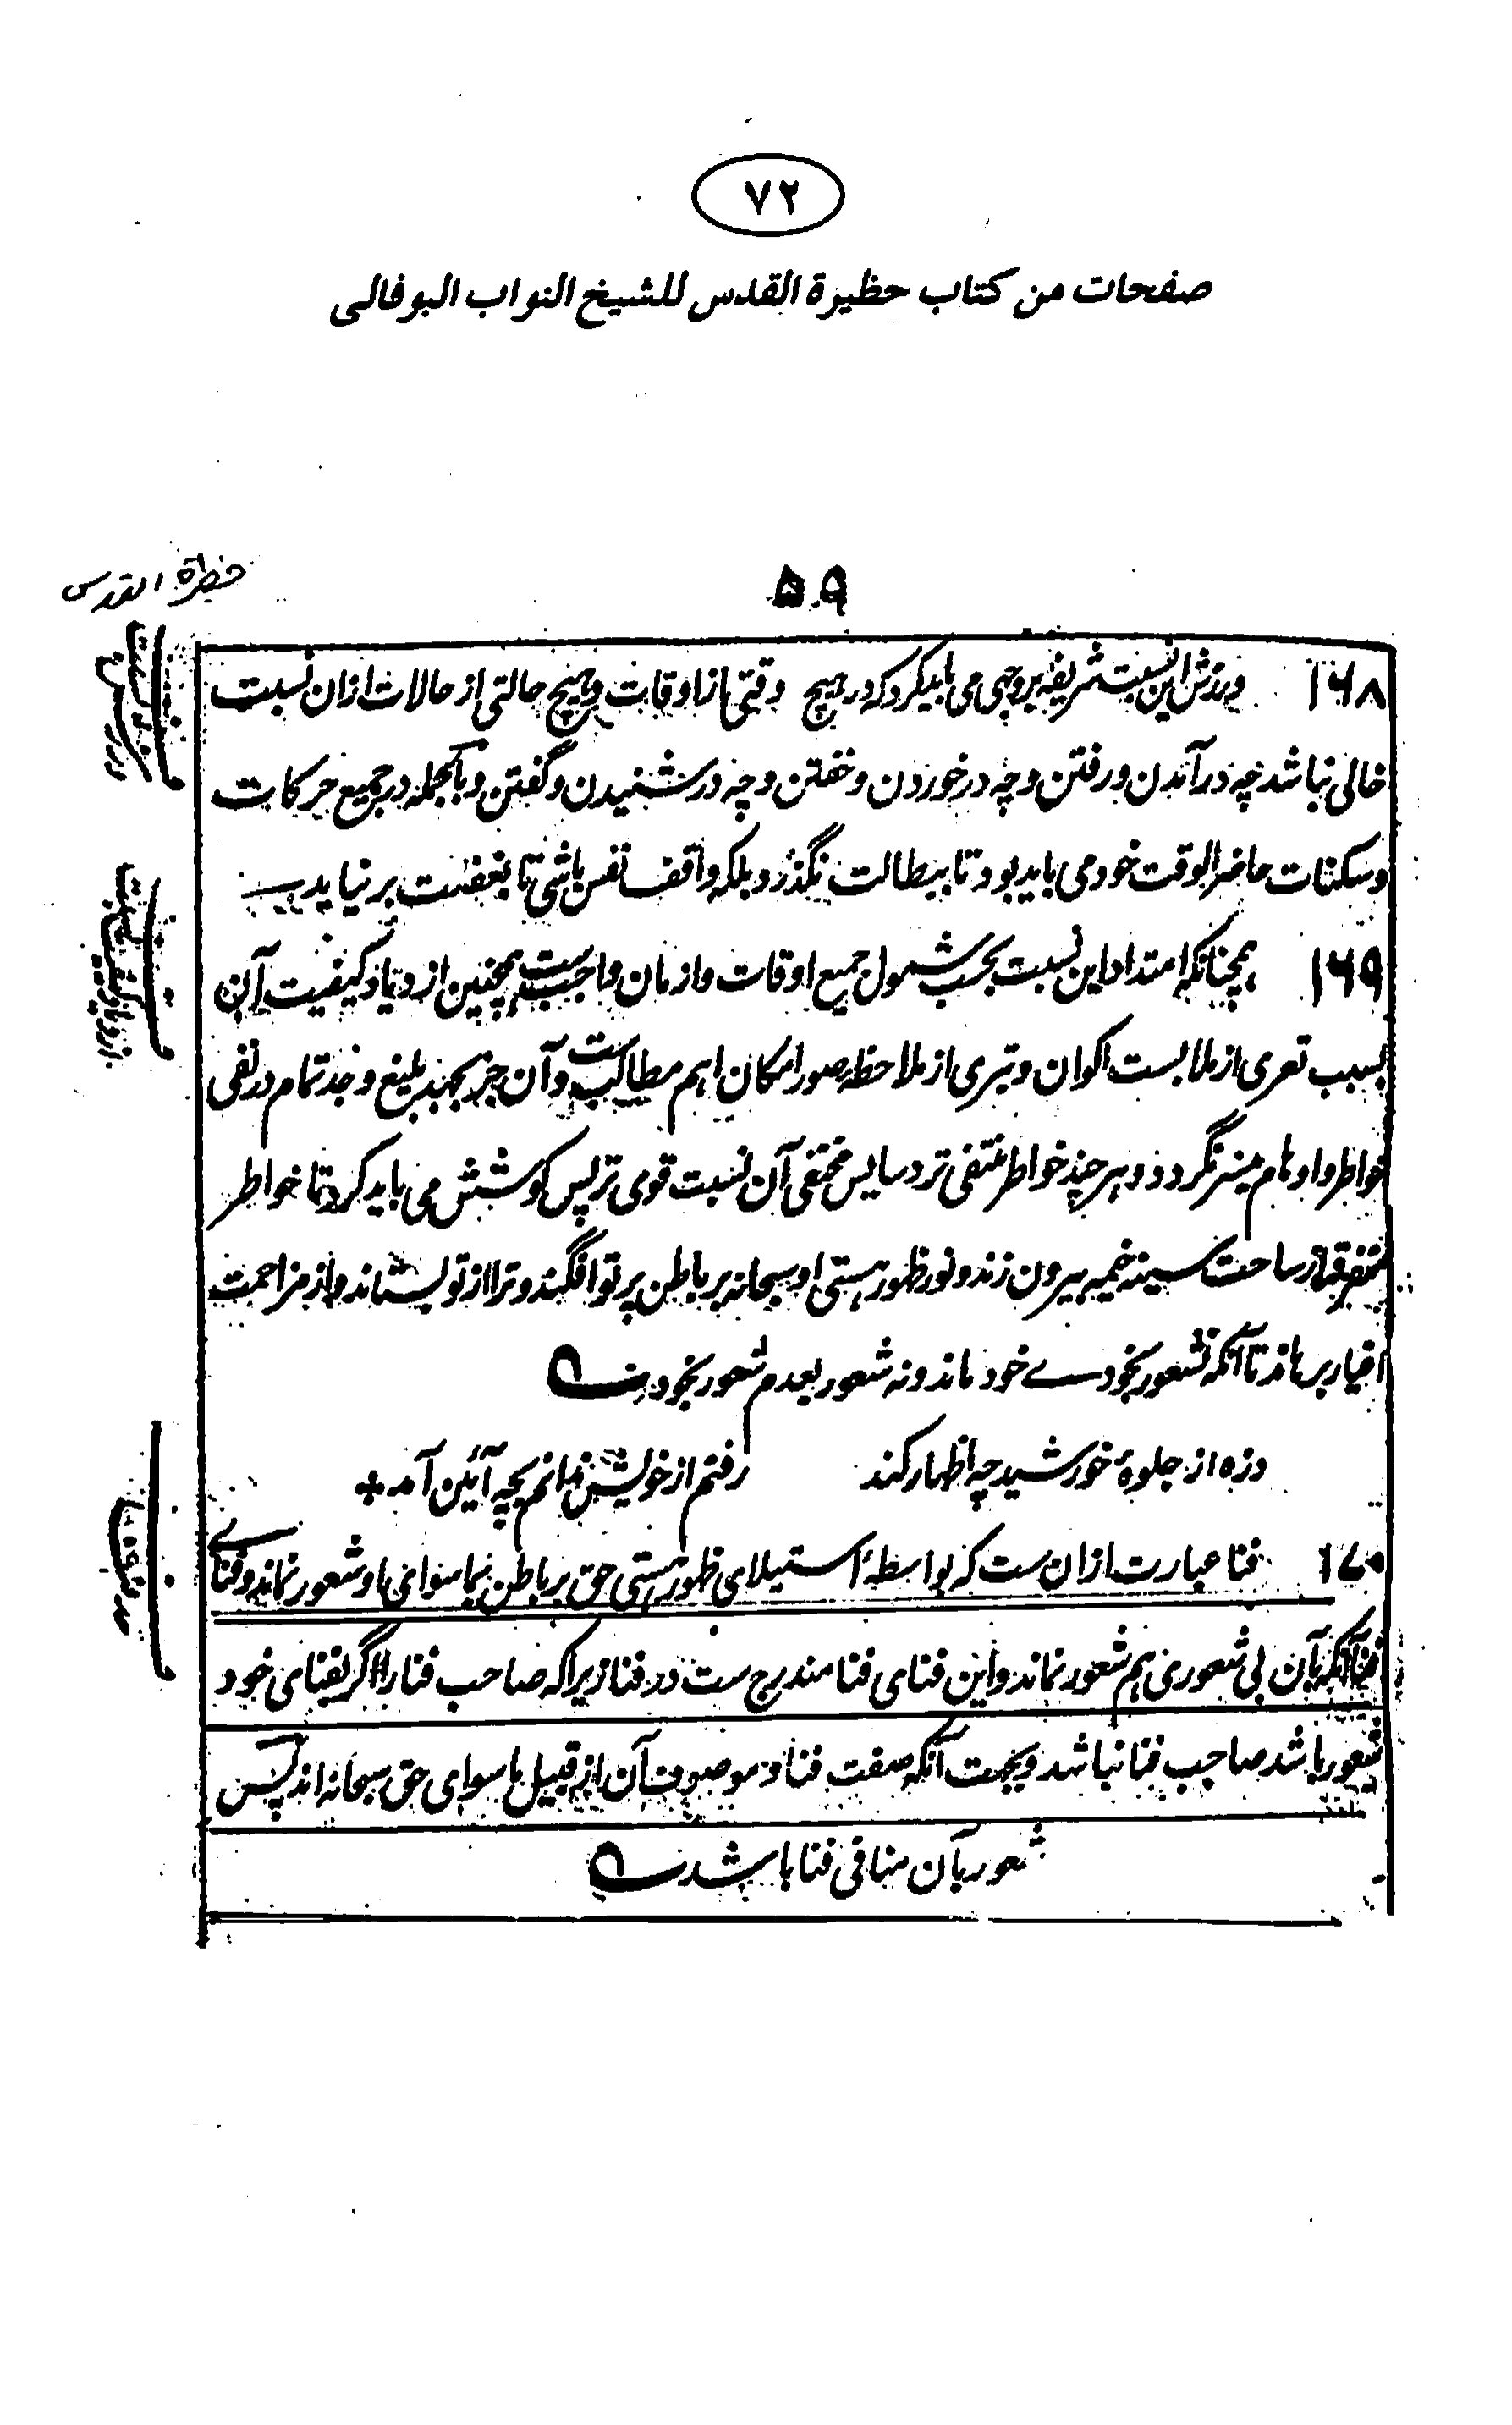 ٧٢
صفحات من كتاب حظيرة القدس للشيخ النواب البوفالى
۵۹
حظيرة القدس
۱۶۸ ورزش این نسبت شریفه بر وجهی می باید کرد که در هیچ وقتی از اوقات و هیچ حالتی از حالات ازان نسبت
خالی نباشد چه در آمدن و رفتن و چه در خوردن و خفتن و چه در شنیدن و گفتن و بالجمله در جمیع حرکات
و سکنات حاضر الوقت خود می باید بود تا ببطالت نگذرد بلکه واقف نفس باشی تا بغفلت بر نیاید
۱۶۹ همچنانکه امتداد این نسبت بحسب شمول جمیع اوقات و ازمان واجب ست همچنین ازدیاد کیفیت آن
بسبب تعری از ملابست اکوان و تبری از ملاحظه صور امکان اهم مطالب ست و آن جز بجهد بلیغ و جد تمام در نفی
خواطر و اوهام میسر نگردد و هر چند خواطر منتفی تر و ساوس مختفی آن نسبت قوی تر پس کوشش می باید کرد تا خواطر
متفرقه از ساحت سینه خیمه بیرون زند و نور ظهور هستی او سبحانه بر باطن پرتو افگند و ترا از تو بستاند و از مزاحمت
اغیار برهاند تا آنکه نه شعور بخودے خود ماند و نه شعور بعدم شعور بخود
ذره از جلوۀ خورشید چه اظهار کند رفتم از خویش ندانم بچه آئین آمد +
۱۷۰ فنا عبارت ازان ست که بواسطۀ استیلای ظهور هستی حق بر باطن بما سوای او شعور نماند و فنای
فنا آنکه بآن بی شعوری هم شعور نماند و این فنای فنا مندرج ست در فنا زیرا که صاحب فنا را اگر بفنای خود
شعور باشد صاحب فنا نباشد و بجهت آنکه صفت فنا و موصوف آن از قبیل ما سوای حق سبحانه اند پس
شعور بآن منافی فنا باشد